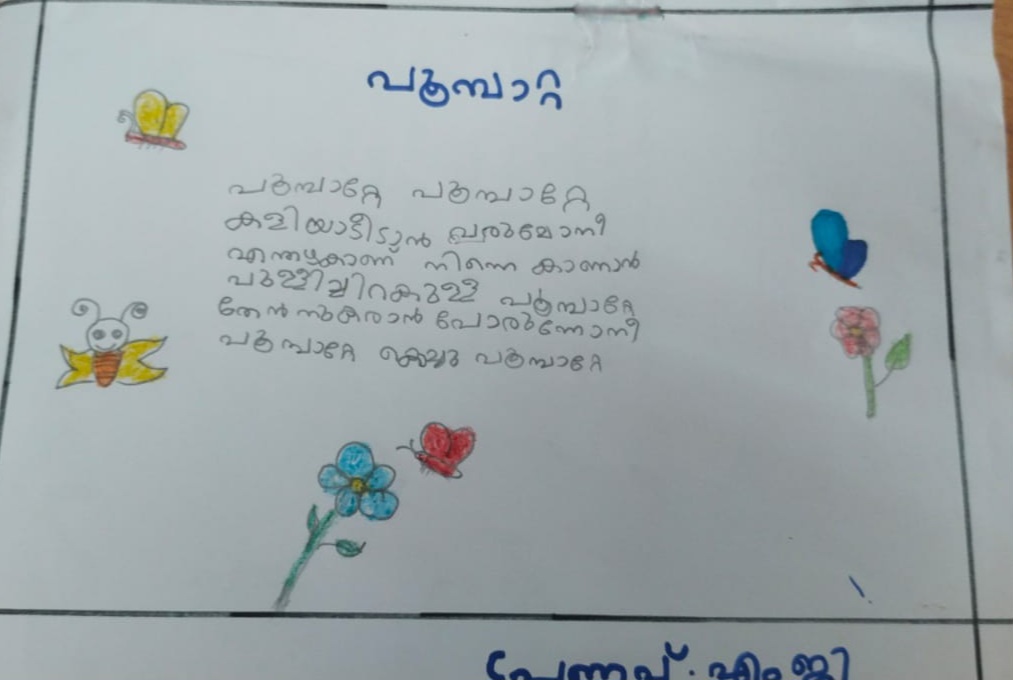 പൂമ്പാറ്റ
പൂമ്പാറ്റേ പൂമ്പാറ്റേ
കളിയാടീടാൻ വരുമോനീ
എന്തഴകാണ് നിന്നെ കാണാൻ
പുള്ളിച്ചിറകുള്ള പൂമ്പാറ്റേ
തേൻ നുകരാൻ പോരുന്നോനീ
പൂമ്പാറ്റേ കൊച്ചു പൂമ്പാറ്റേ
പ്രണവ്. എം.ജി